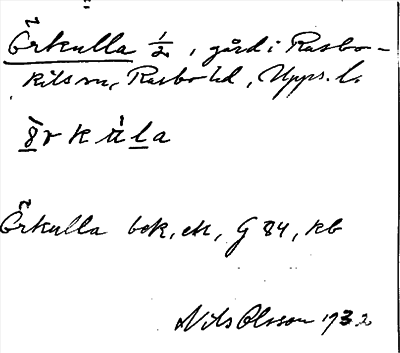 Örkulla 1/2, gård i Rasbo-
kils sn, Rasbo hd, Upps. l.
Örkulla bok, ek, G 84, kb
Nils Olsson 1932